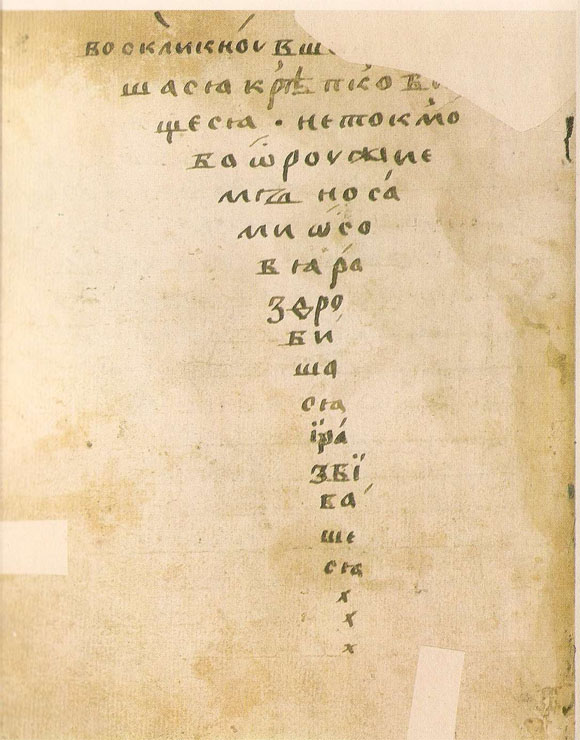 воскликноу вш
шасꙗ крѣпко в
щесꙗ · нетокмо
ва ѡроужие
мъ но са́
ми ѡсо
вꙗ ра
зеро
би
ша
сꙗ
їра́
ꙁвї
ва
ше
сꙗ
х
х
х